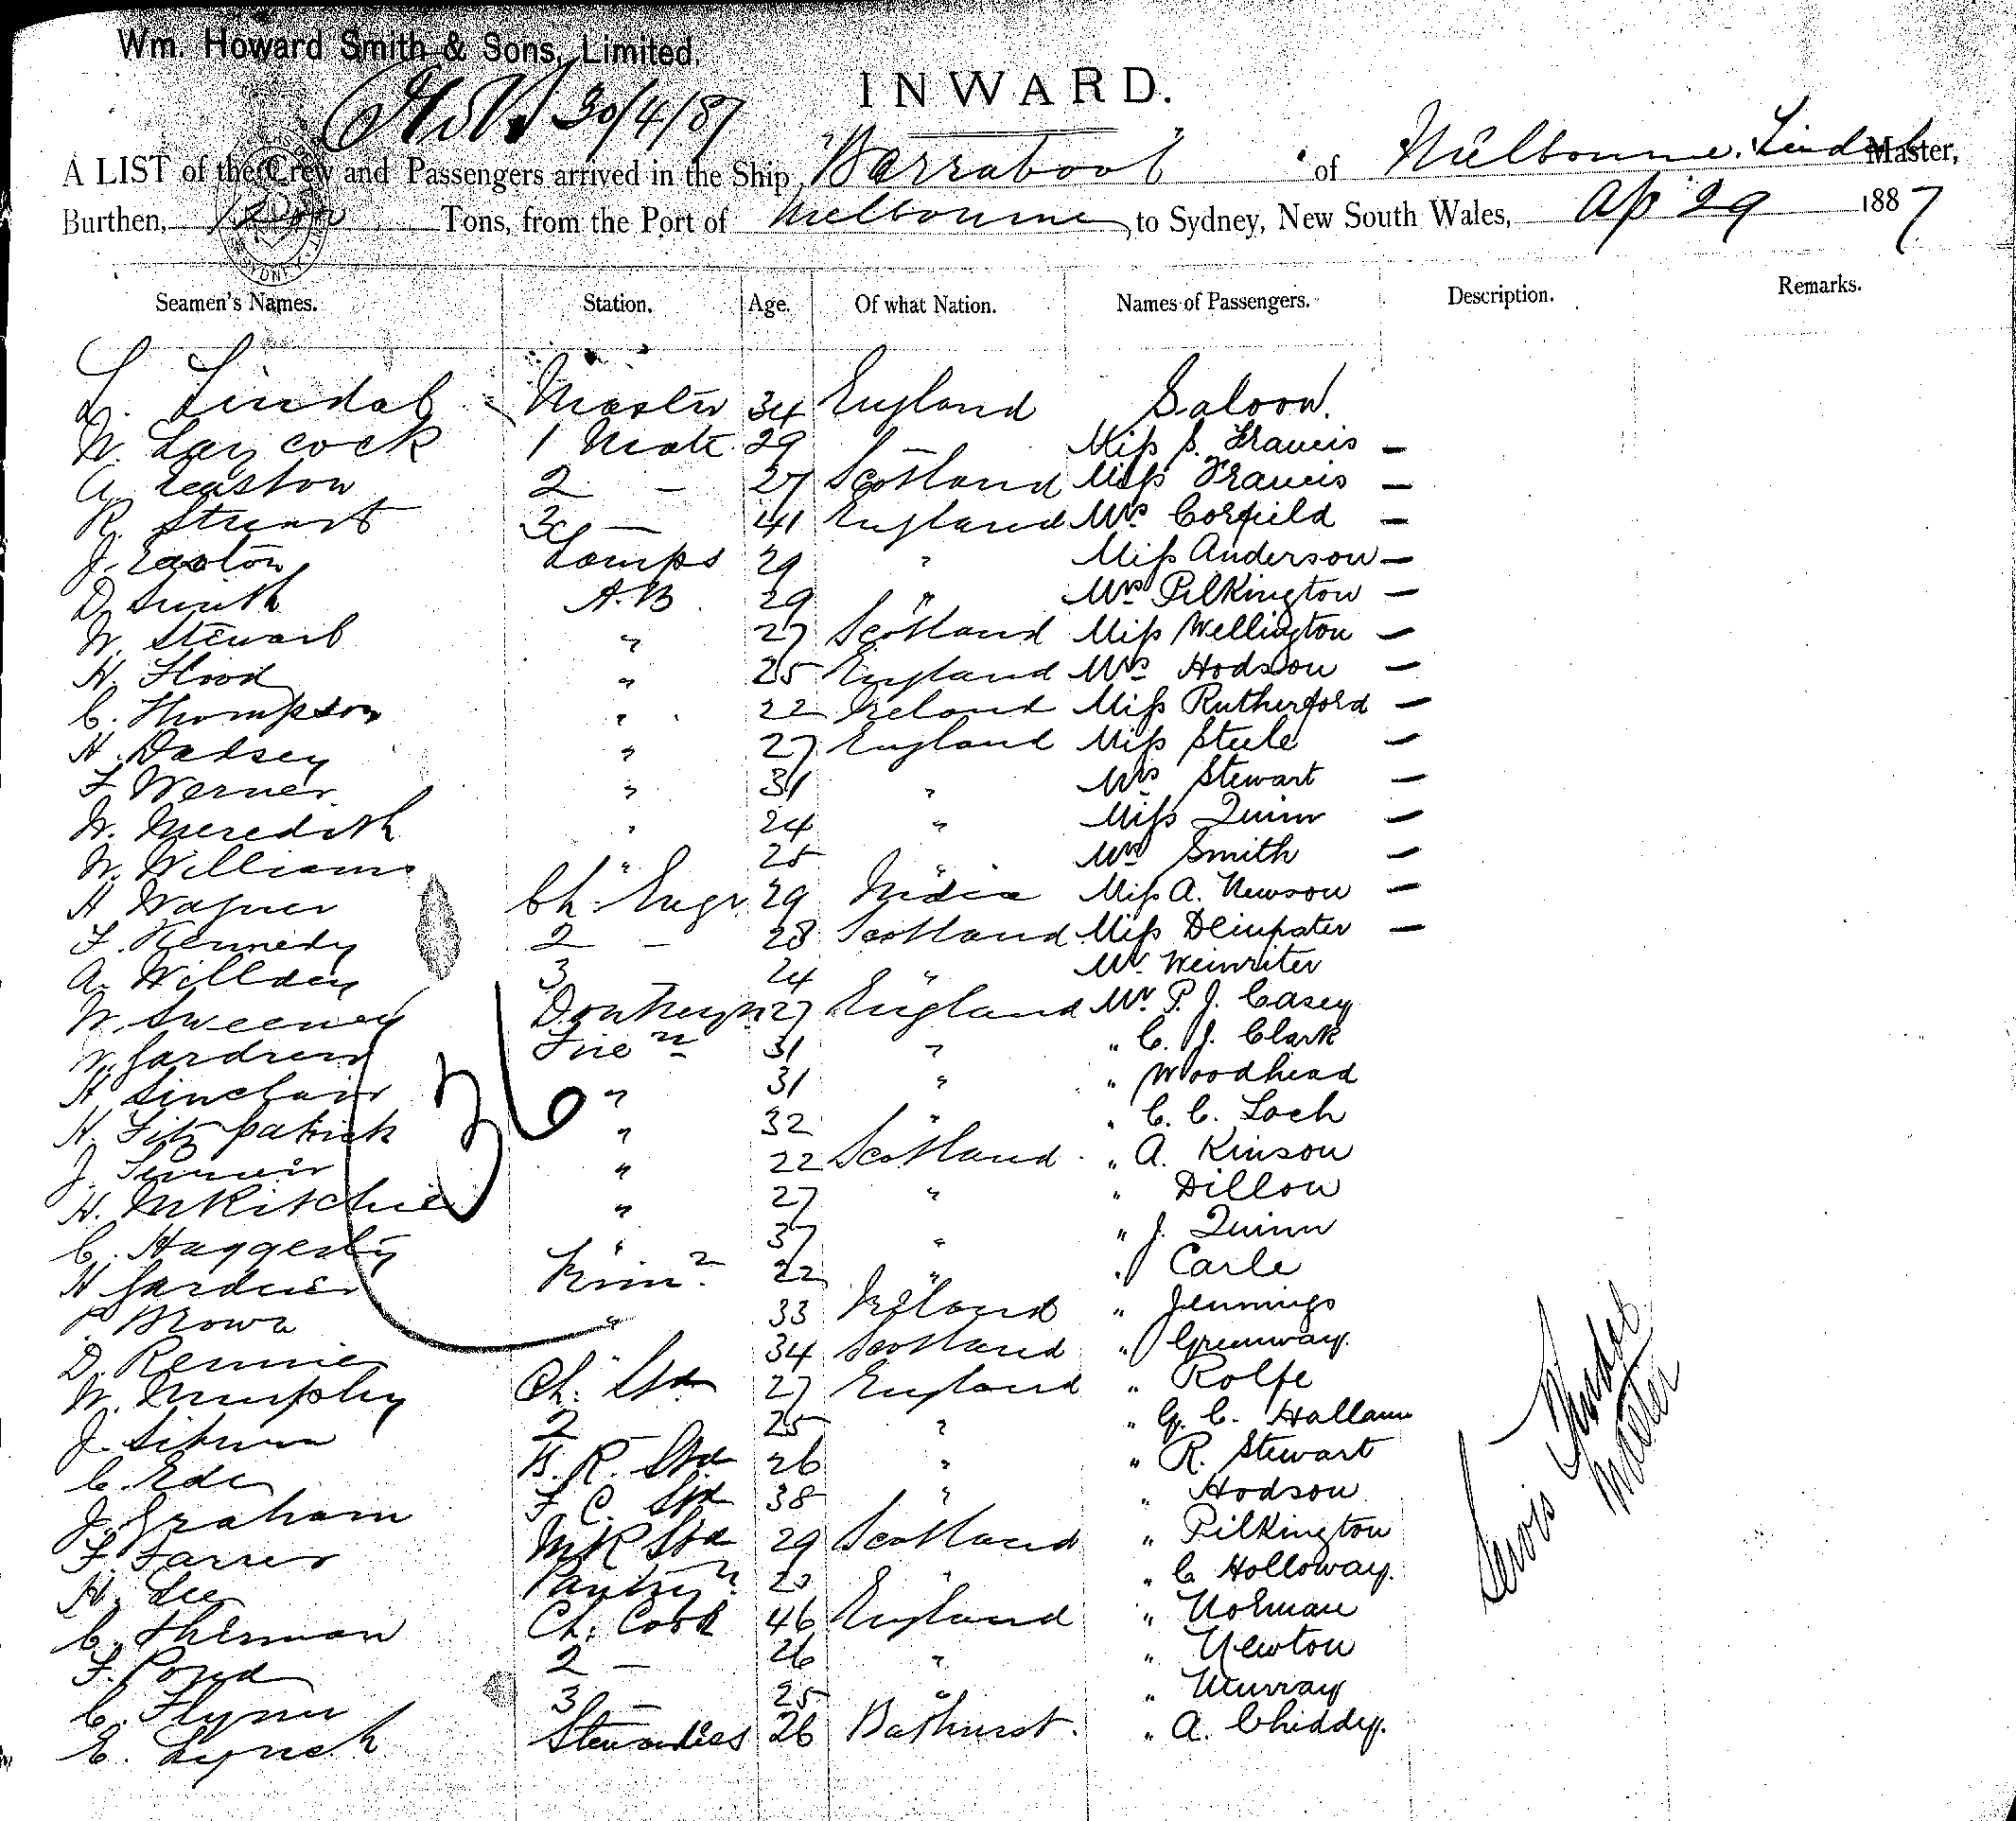 Wm. Howard Smith & Sons, Limited.
30/4/87
INWARD.
A LIST of the Crew and Passengers arrived in the Ship "Barrabool" of Melbourne, Lindal Master,
Burthen, Tons, from the Port of Melbourne, to Sydney, New South Wales, Ap 29 1887
Seamen's Names. Station. Age. Of what Nation. Names of Passengers. Description. Remarks.
L. Lindal Master 34 England Saloon.
W. Laycock 1 Mate 29 Miss S. Francis —
A. Easton 2 — 27 Scotland Miss Francis —
R. Stuart 3 — 41 England Mrs Corfield —
J. Easton Lamps 29 " Miss Anderson —
D. Smith A.B. 29 " Mrs Pilkington —
W. Stewart " 27 Scotland Miss Wellington —
H. Flood " 25 England Mrs Hodson —
C. Thompson " 22 Ireland Miss Rutherford —
H. Dadsey " 27 England Miss Steele —
F. Werner " 31 " Mrs Stewart —
W. Meredith " 24 " Miss Quinn —
W. Williams " 25 " Mrs Smith —
H Wagner Ch. Engr. 29 India Miss A. Newson —
F. Kennedy 2 — 28 Scotland Miss Dempster —
A. Willday 3 24 " Mr Weinriter
W. Sweeney Donkeyn 27 England Mr P. J. Casey
W. Gardner Firen 31 " " C. J. Clark
H Sinclair " 31 " " Woodhead
H. Fitzpatrick " 32 " " C. C. Loch
J. " 22 Scotland " A. Kinson
H. McRitchie " 27 " " Dillon
C. Haggerty " 37 " " J. Quinn
H Gardner Trimr 22 " " Carle
P. Brown " 33 Ireland " Jennings
D. Rennie " 34 Scotland " Greenway.
W. Murphy Ch. Std 27 England " Rolfe
J. 2 25 " " G. C. Hallam
C. Ede B. R. Std 26 " " R. Stewart
J. Graham F. C. Std 38 " " Hodson
F. Farrer M R Std 29 Scotland " Pilkington
H. Lee Pantryn 23 " " C Holloway.
C. Sherman Ch. Cook 46 England " Norman
F. Pond 2 — 26 " " Newton
C. Flynn 3 — 25 " " Murray
E. Lynch Stewardess 26 Bathurst. " A. Chiddy.
36
Lewis Lindal
Master